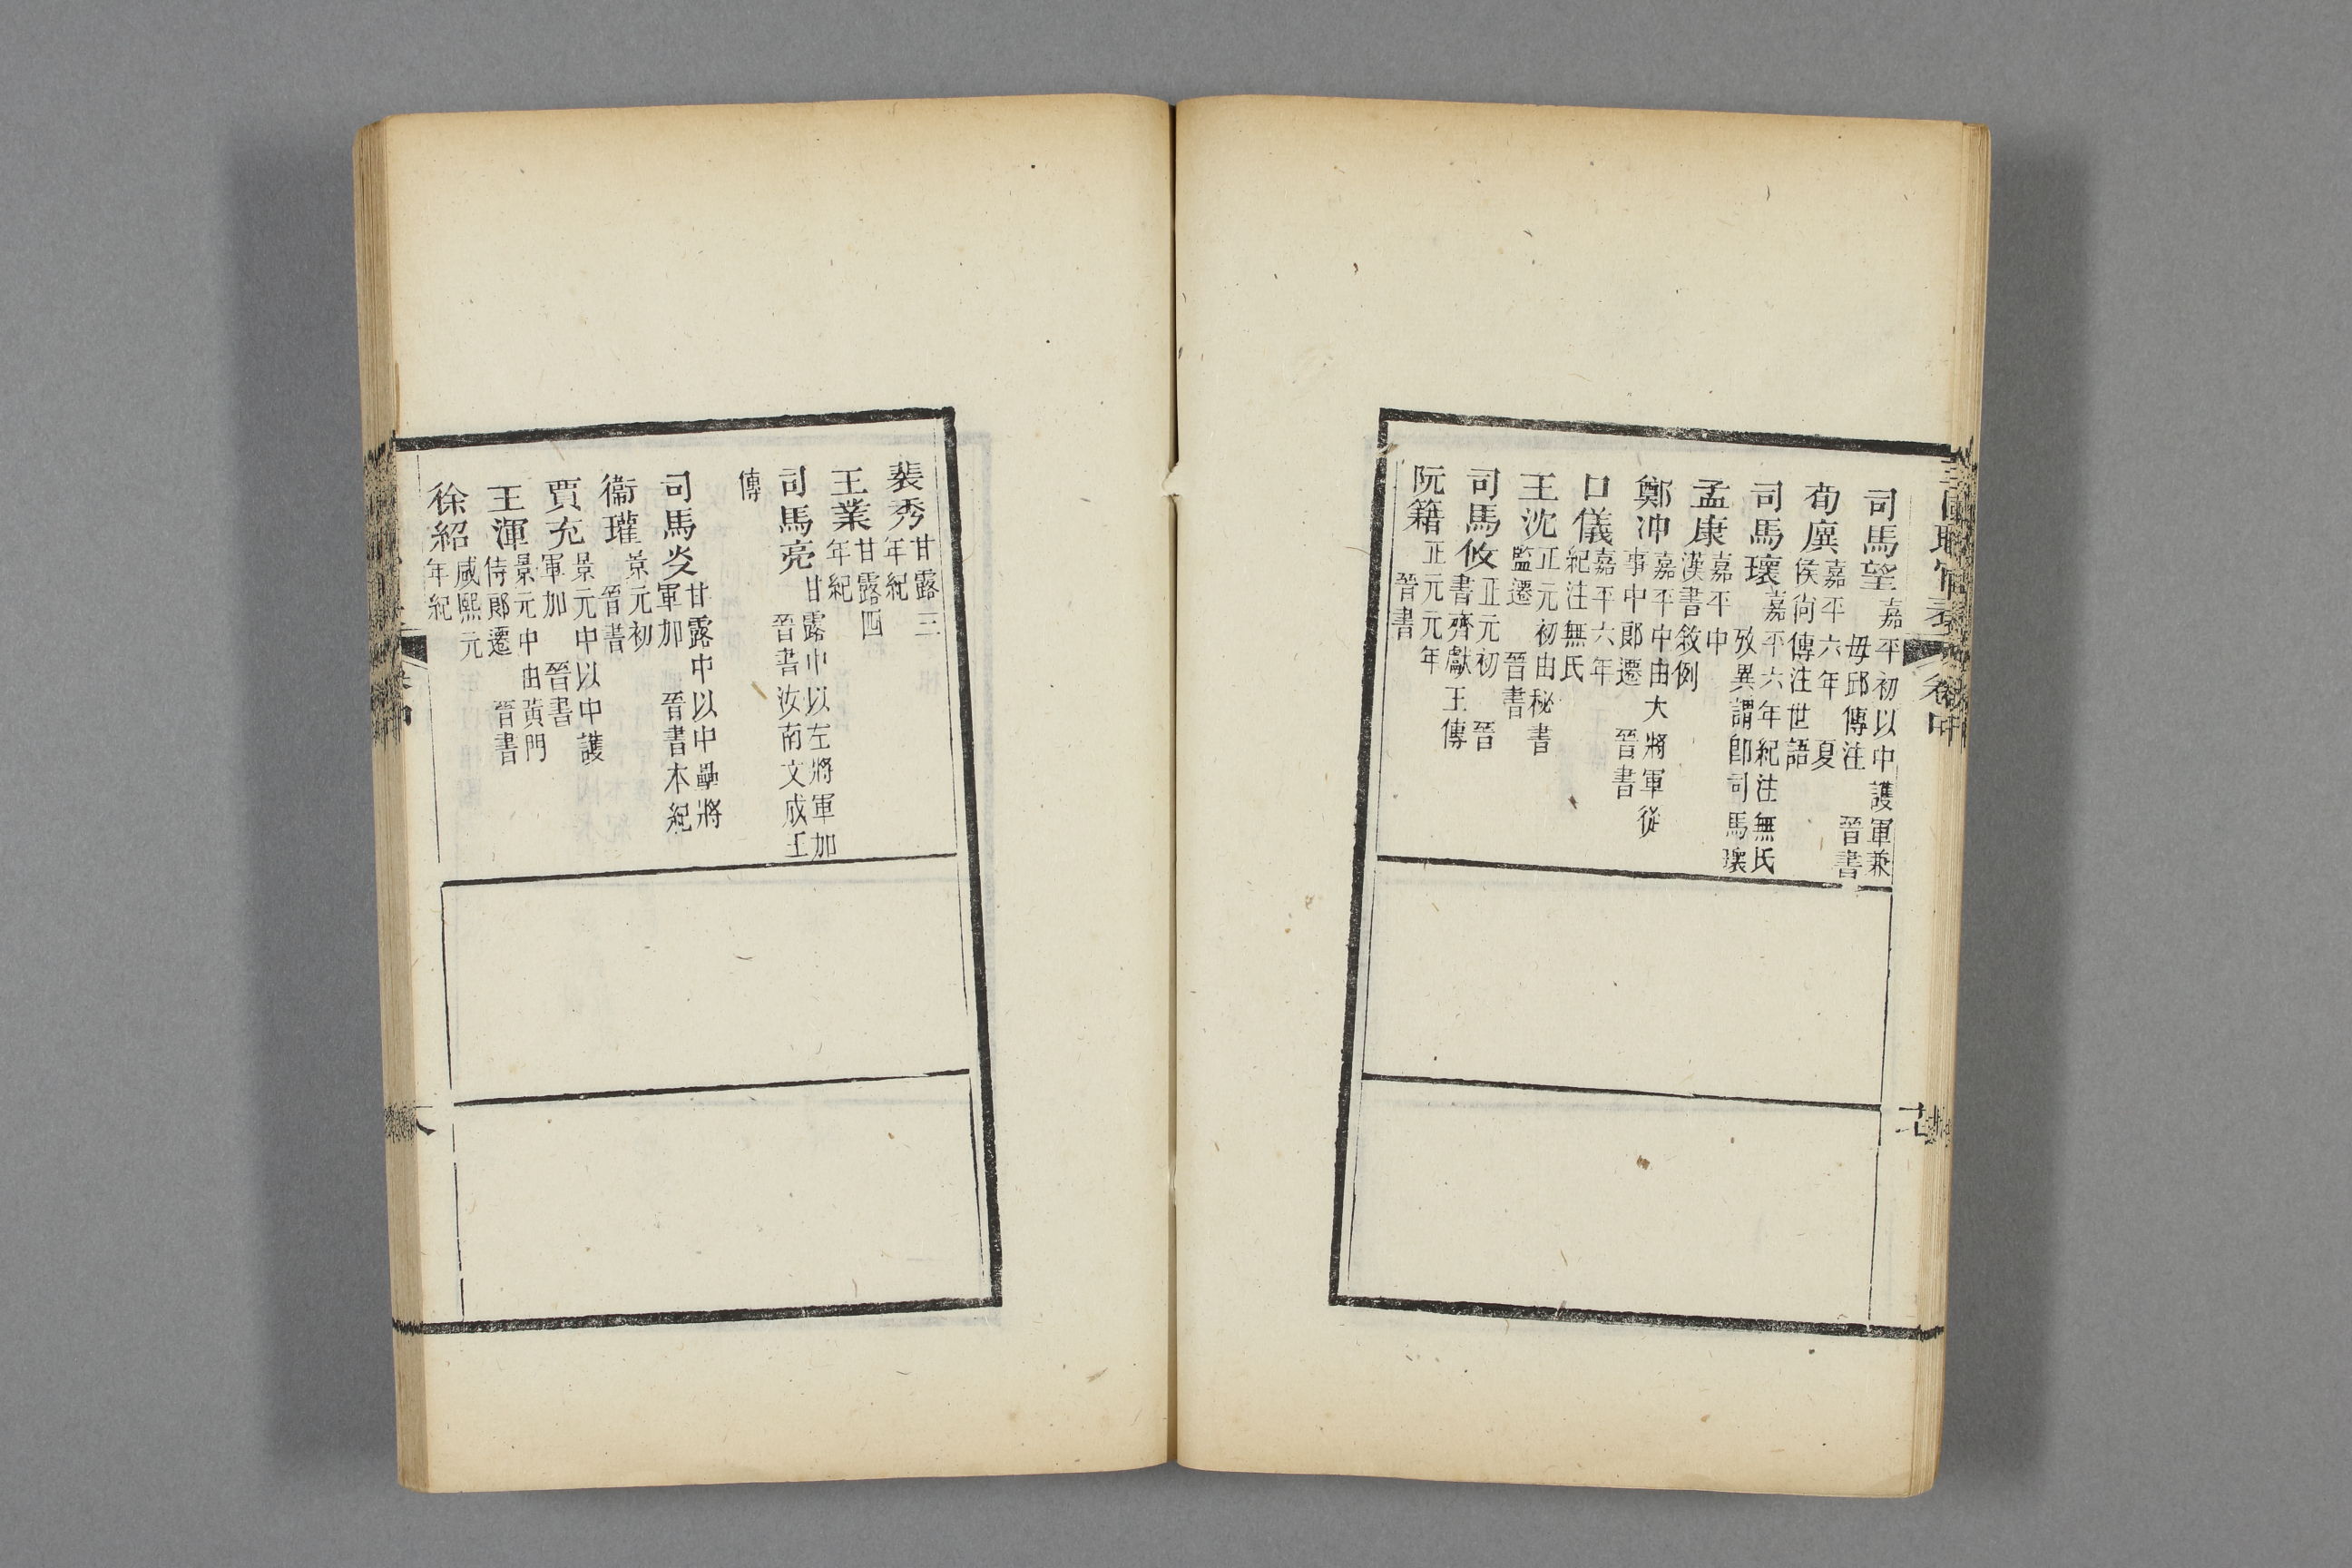 三國職官表 卷中
司馬望 嘉平初以中護軍兼 晉書
毋邱傳注
荀廙 嘉平六年 夏
侯尚傳注世語
司馬瓌 嘉平六年紀注無氏
攷異謂卽司馬瓌
孟康 嘉平中
漢書敘例
鄭冲 嘉平中由大將軍從
事中郎遷 晉書
口儀 嘉平六年
紀注無氏
王沈 正元初由秘書
監遷 晉書
司馬攸 正元初 晉
書齊獻王傳
阮籍 正元元年
晉書
裴秀 甘露三
年紀
王業 甘露四
年紀
司馬亮 甘露中以左將軍加
晉書汝南文成王
傳
司馬炎 甘露中以中壘將
軍加 晉書本紀
衞瓘 景元初
晉書
賈充 景元中以中護
軍加 晉書
王渾 景元中由黃門
侍郎遷 晉書
徐紹 咸熙元
年紀